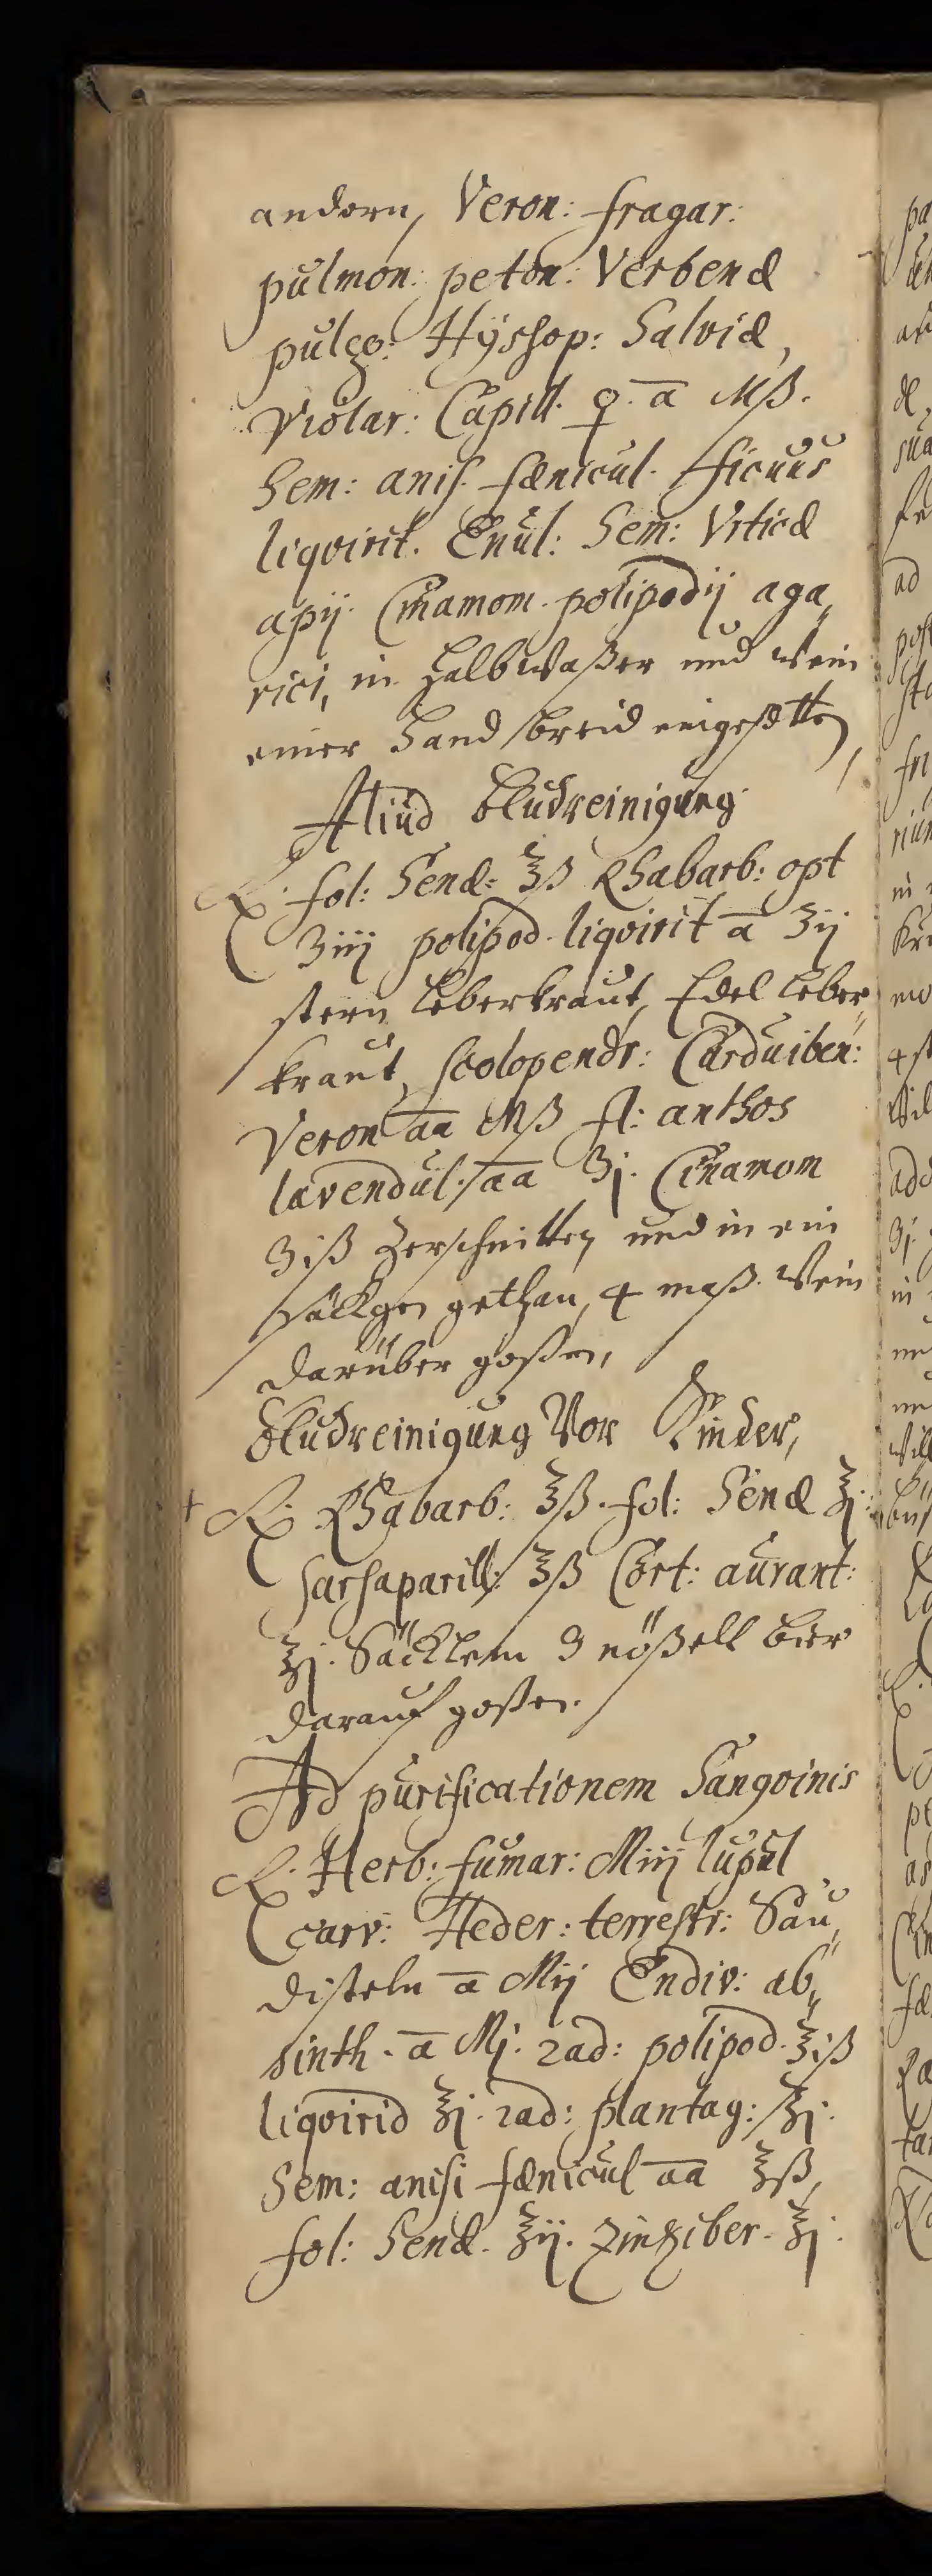 andern, Veron: fragar:
pulmon: peton: Verbenæ
puleg: Hÿssop: Salviæ,
Violar: Capill. ♀. a͞ Mß.
Sem: anis. fænicul. ficuus
liqvirit. Enul: Sem: Vrticæ
apij. Cinamom. polipodij aga„
rici, in halb waßer und wein
einer Hand breid eingesotten,
Aliud Bludreinigung.
℞. fol: Senæ: ℥ß Rhabarb: opt
ʒiij polipod. liqvirit a͞ ʒij
stern leberkraut, Edel leber„
kraut, scolopendr: Cardui ben:
Veron a͞a Mß fl: anthos
lavendul. a͞a ʒj. Cinamom
ʒiß zerschnitten und in ein
säckgen gethan, 4 maß. wein
darüber goßen,
Bludreinigung Vor Kinder,
+ ℞. Rhabarb: ℥ß. fol: Senæ ℥j:
sarsaparill: ℥ß Cort: aurant:
℥j. Säcklein 3 nößell bier
darauf goßen.
Ad purificationem Sangvinis
℞. Herb: fumar: Miij lupul
carv: Heder: terrestr: Sau„
disteln a͞ Mij Endiv: ab„
sinth. a͞ Mj. rad: polipod. ℥iß
liqvirid ℥j. rad: plantag: ℥j.
Sem: anisi fænicul a͞a ℥ß,
fol: Senæ. ℥ij. zinziber. ℥j.